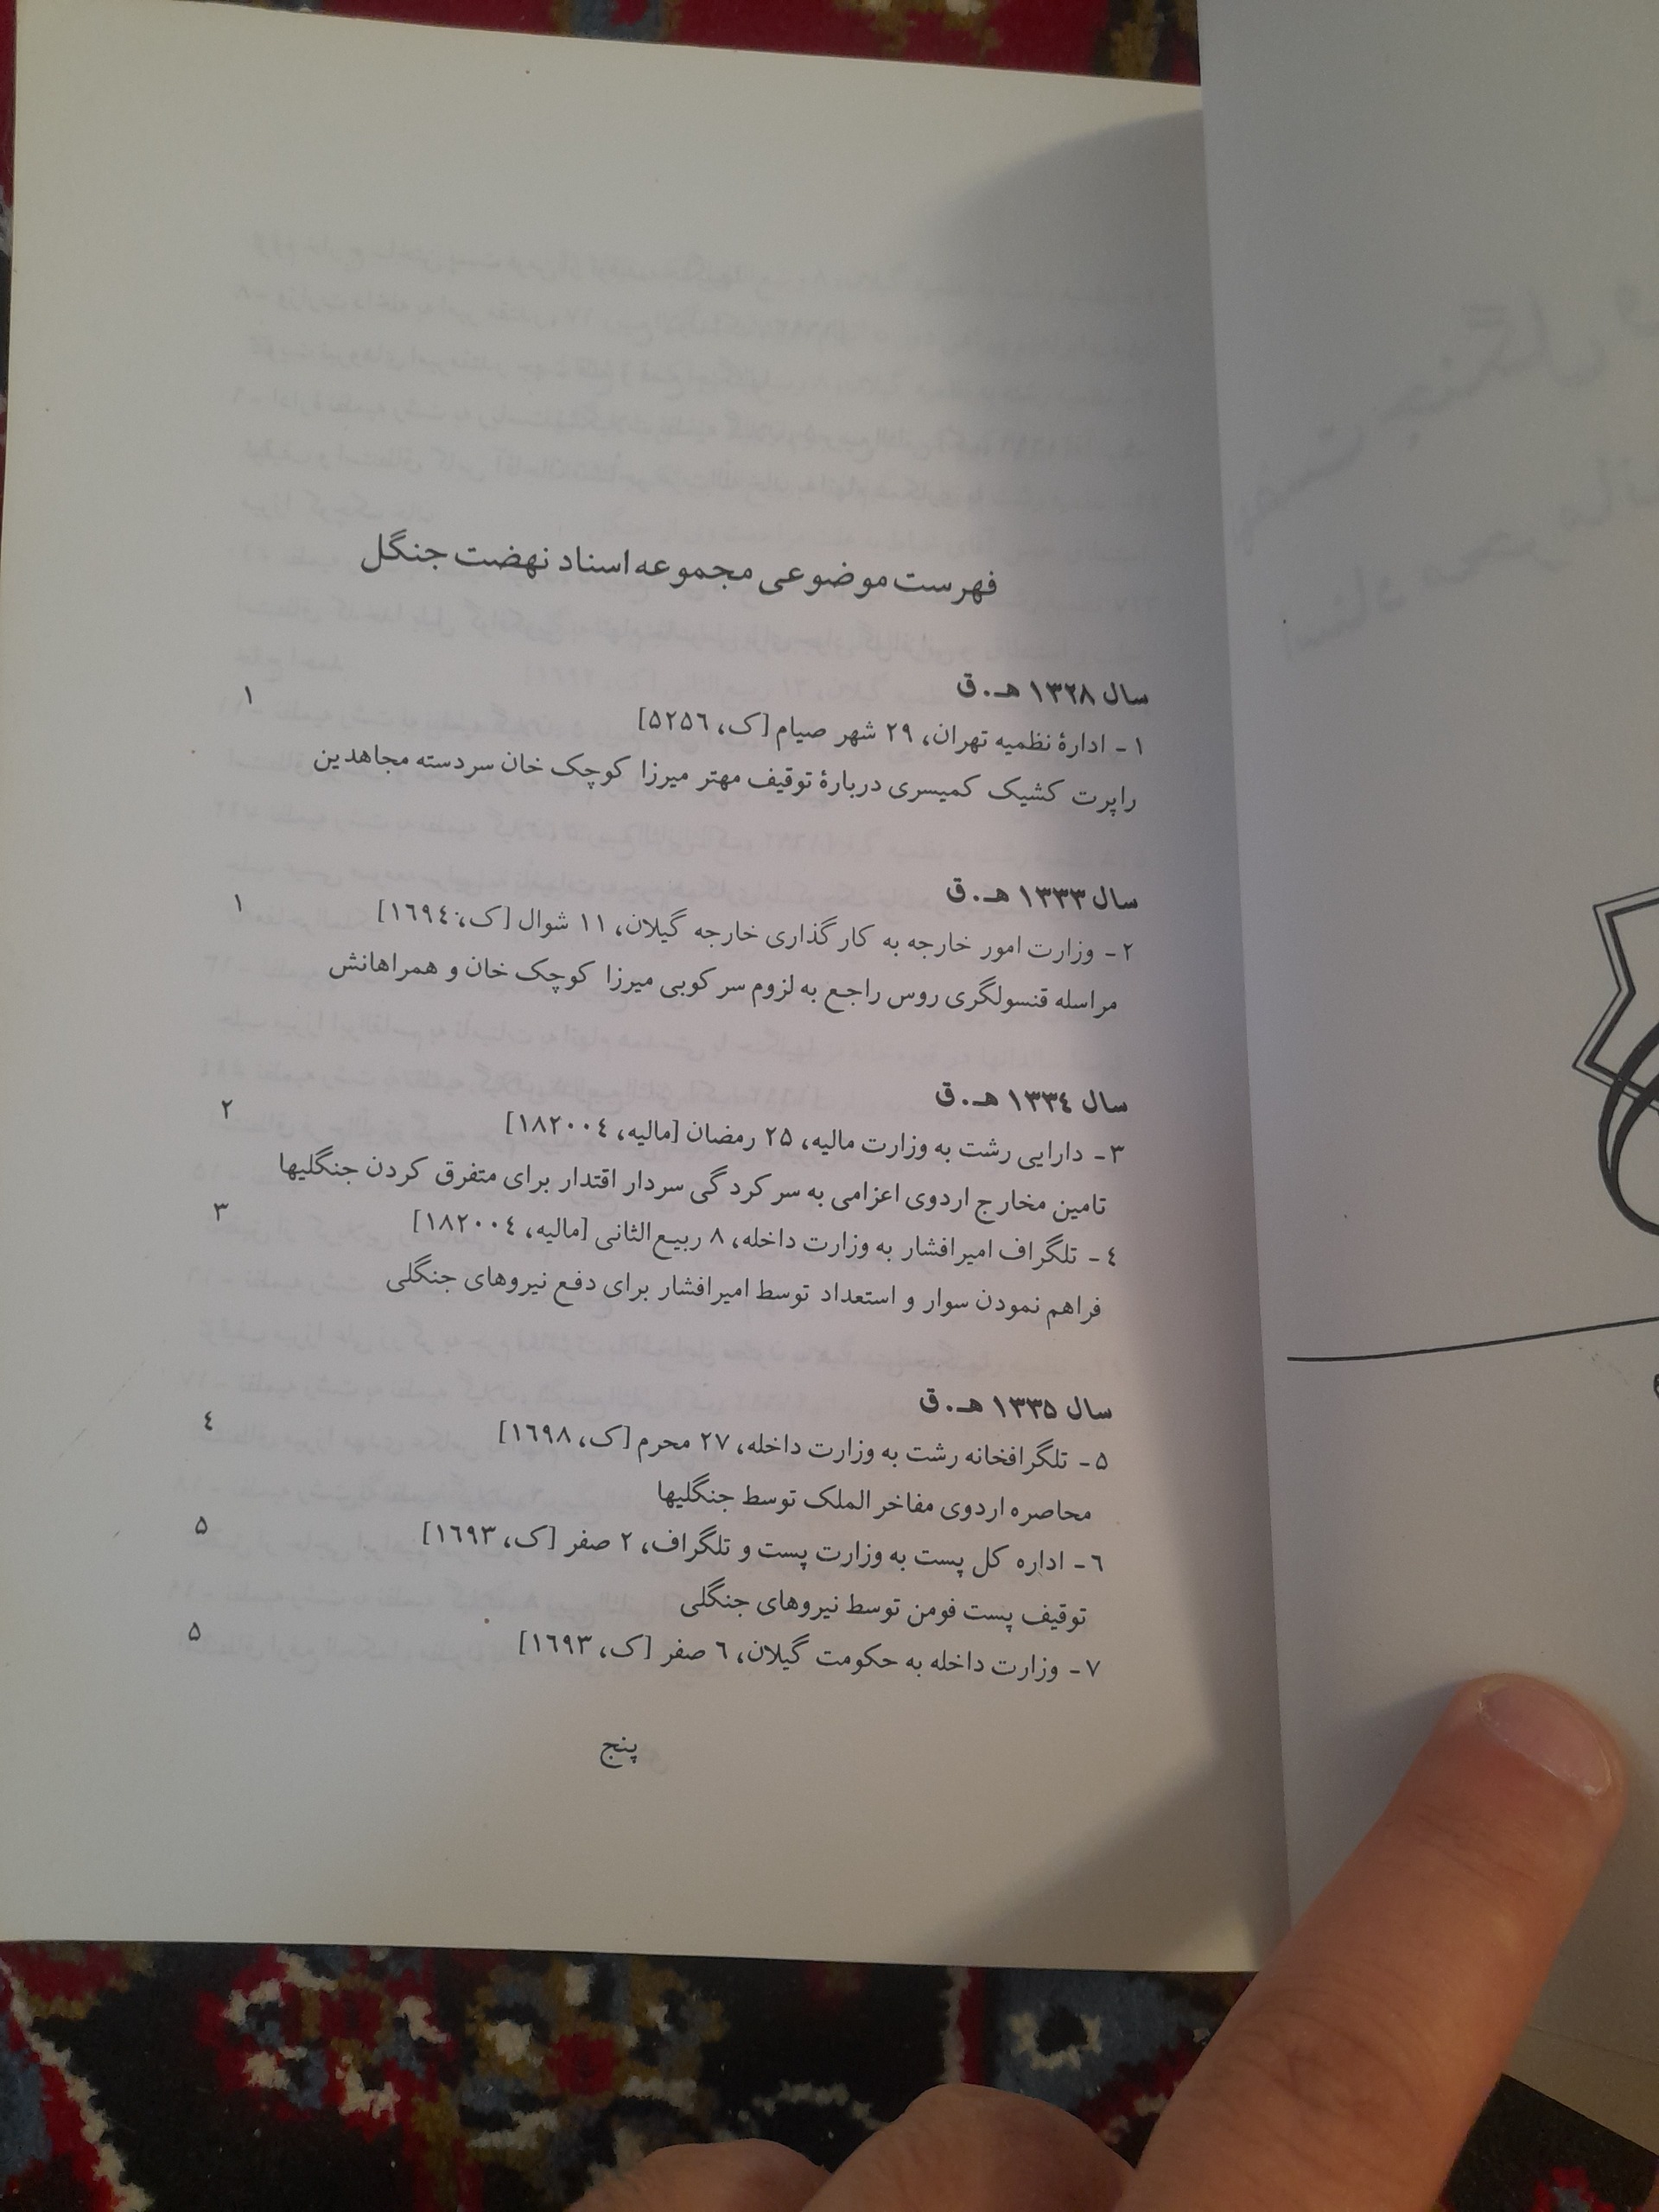 فهرست موضوعی مجموعه اسناد نهضت جنگل
سال ۱۳۲۸ هـ.ق
۱- ادارهٔ نظمیه تهران، ۲۹ شهر صیام [ک، ۵۲۵۶] ۱
راپرت کشیک کمیسری دربارهٔ توقیف مهتر میرزا کوچک خان سردسته مجاهدین
سال ۱۳۳۳ هـ.ق
۲- وزارت امور خارجه به کارگذاری خارجه گیلان، ۱۱ شوال [ک، ۱۶۹۴] ۱
مراسله قنسولگری روس راجع به لزوم سرکوبی میرزا کوچک خان و همراهانش
سال ۱۳۳۴ هـ.ق
۳- دارایی رشت به وزارت مالیه، ۲۵ رمضان [مالیه، ۱۸۲۰۰۴] ۲
تامین مخارج اردوی اعزامی به سرکردگی سردار اقتدار برای متفرق کردن جنگلیها
۴- تلگراف امیرافشار به وزارت داخله، ۸ ربیع‌الثانی [مالیه، ۱۸۲۰۰۴] ۳
فراهم نمودن سوار و استعداد توسط امیرافشار برای دفع نیروهای جنگلی
سال ۱۳۳۵ هـ.ق
۵- تلگرافخانه رشت به وزارت داخله، ۲۷ محرم [ک، ۱۶۹۸] ۴
محاصره اردوی مفاخر الملک توسط جنگلیها
۶- اداره کل پست به وزارت پست و تلگراف، ۲ صفر [ک، ۱۶۹۳] ۵
توقیف پست فومن توسط نیروهای جنگلی
۷- وزارت داخله به حکومت گیلان، ۶ صفر [ک، ۱۶۹۳] ۵
پنج